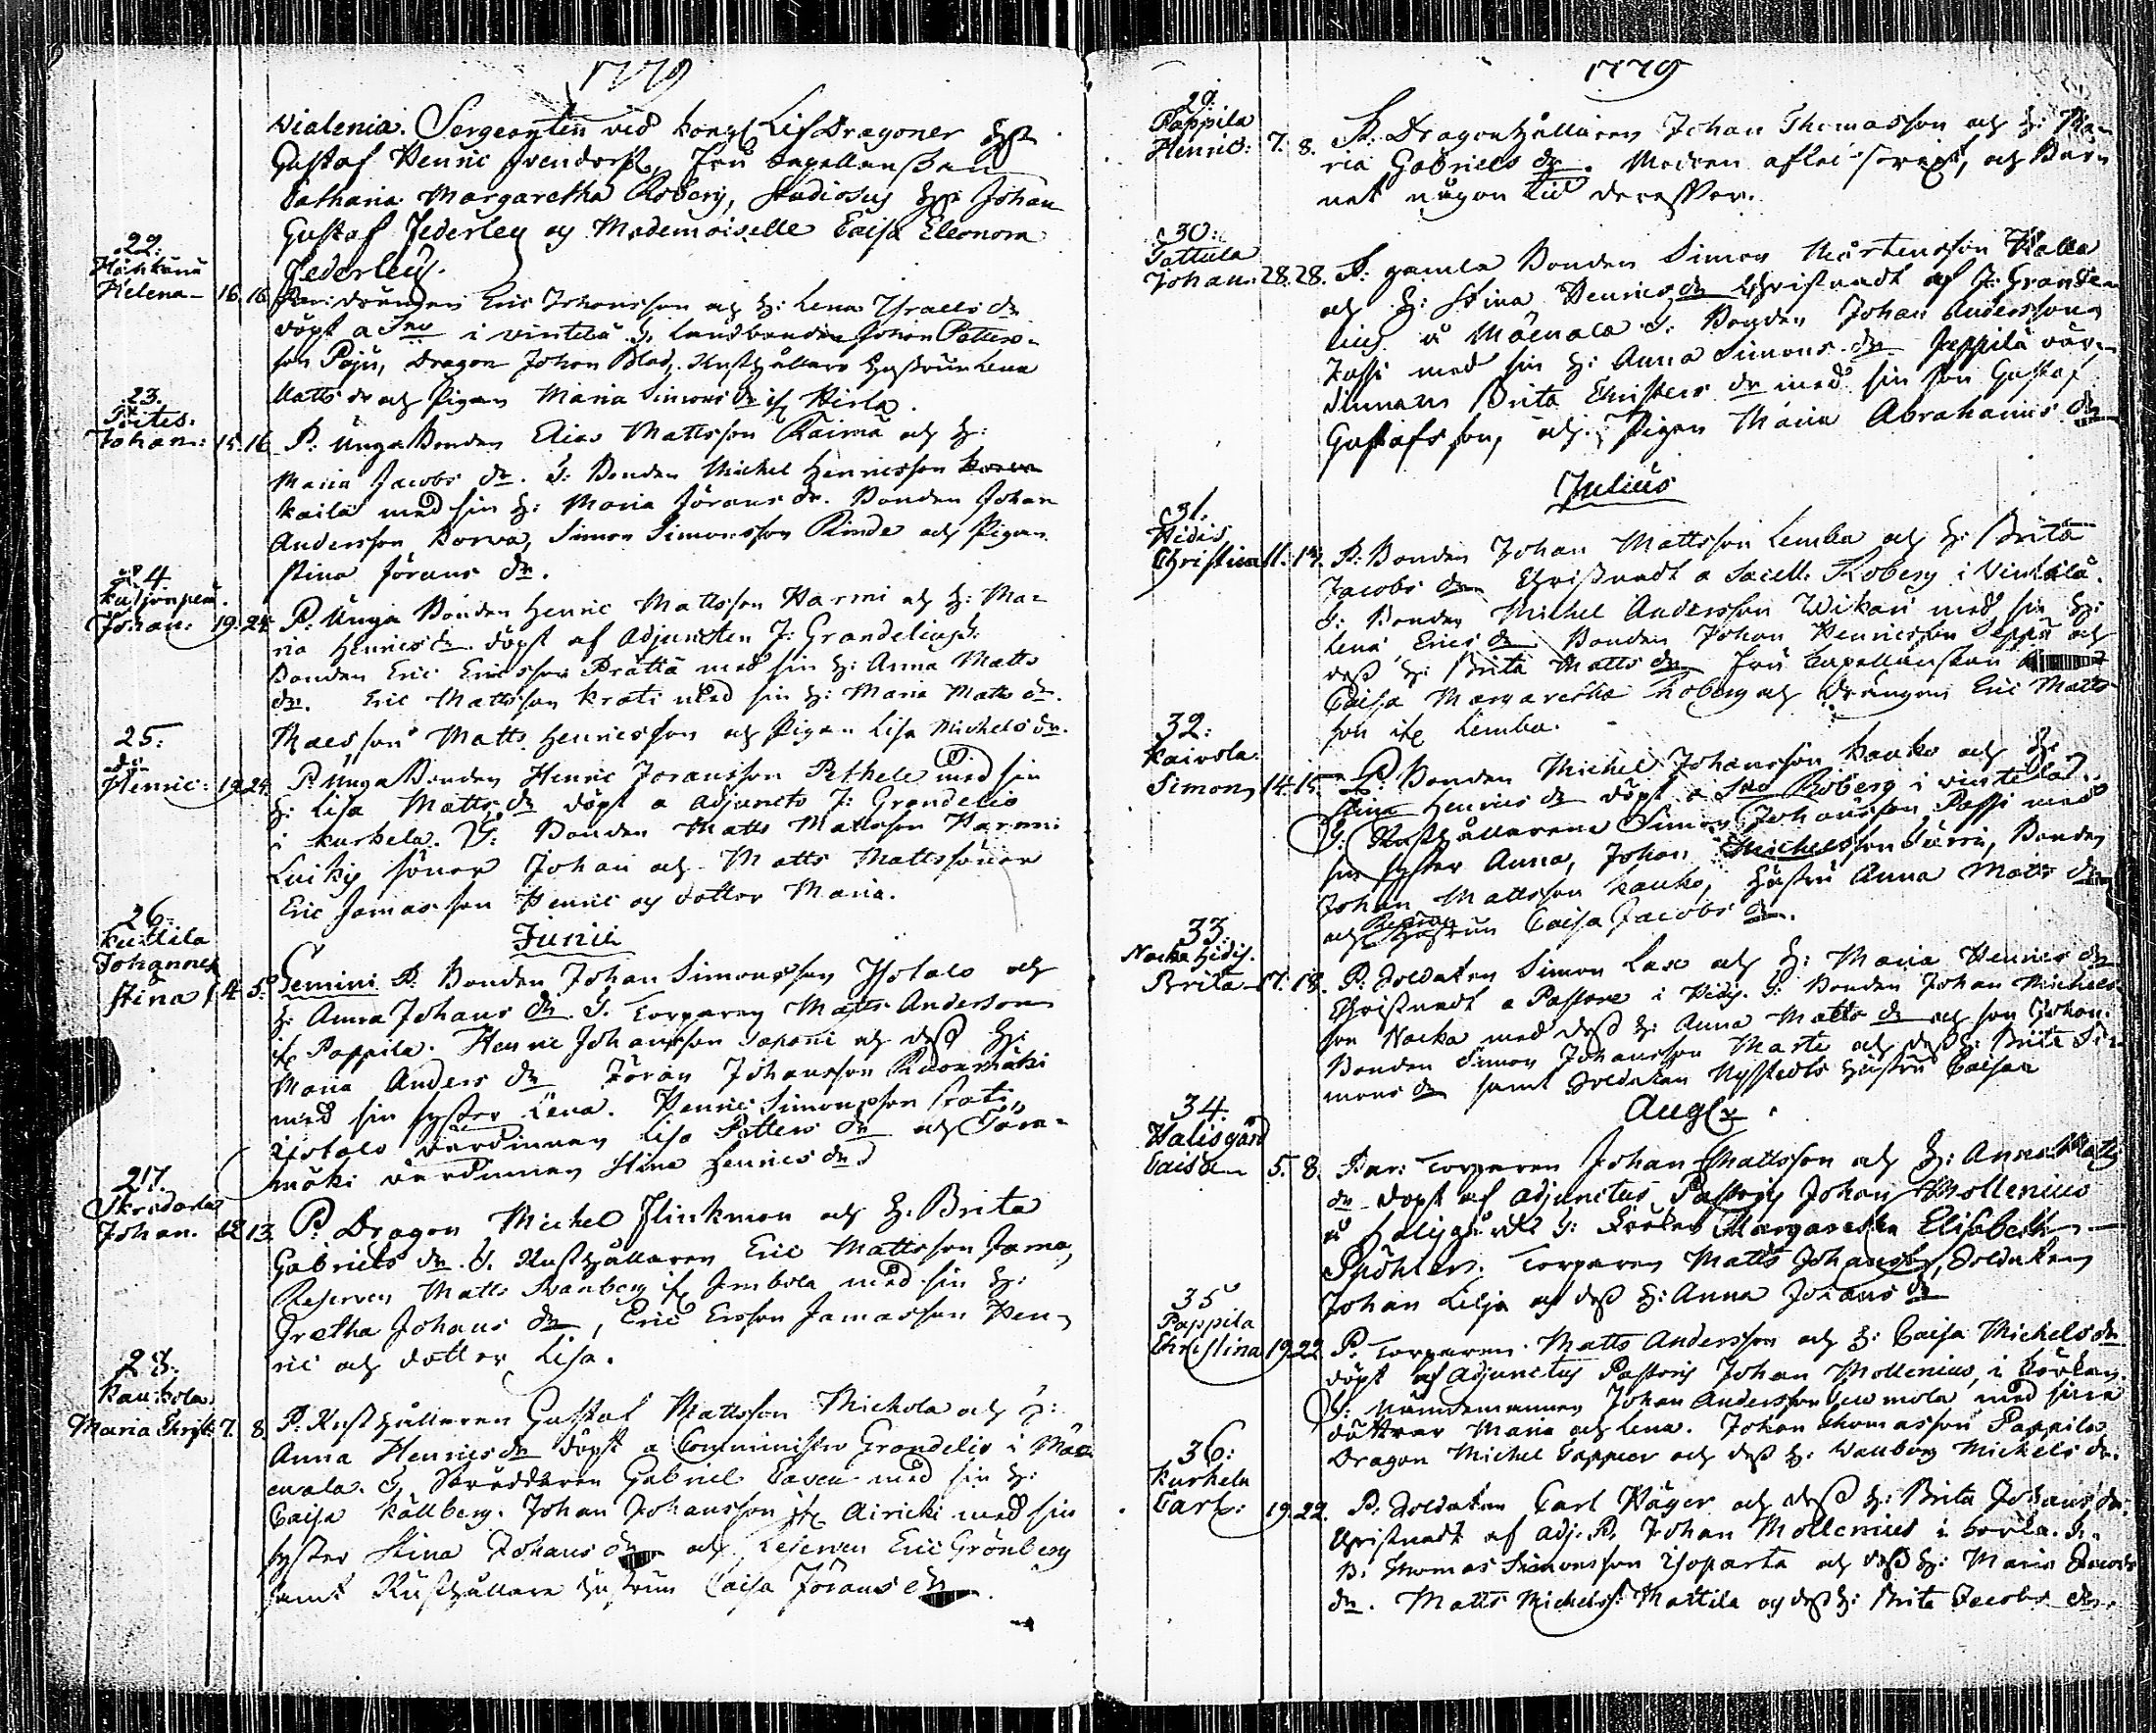 1779
Wialenia. Sergeanten wid kongl Lif Dragoner H
Gustaf Henric Fru Capellanskan
Catharia Margaretha Roberg, Studiosus H Johan
Gustaf Federley og Mademoiselle Caisa Eleonora
Federley.
22.
Helena 16. 16. Par: drängen Eric Johansson och H: Lena Israels dr
döpt a Sno i Vintilä G. Landbonden Johan Petters-
son Paju, Dragon Johan Blad, Rusthållare Hustrun Lena
Matts dr och Pigan Maria Simons dr if Hirla.
23.
Johan: 15. 16. P: Unga Bonden Elias Mattsson Raima och H:
Maria Jacobs dr. G: Bonden Michel Henricsson
kaila med sin H: Maria Jörans dr. Bonden Johan
Andersson Korva, Simon Simonsson Rinde och Pigan
Stina Jörans dr.
24.
Johan: 19. 24. P: Unga Bonden Henric Mattsson Harmi och H: Ma-
ria Henrics dr döpt af Adjuncten J: Grandelius G:
Bonden Eric Ericsson Prättä med sin H: Anna Matts
dr. Eric Mattsson Krati med sin H: Maria Matts dr.
Matts Henricsson och Pigan Lisa Michels dr.
25:
do
Henric: 19. 24. P: Unga Bonden Henric Joransson Pethele med sin
H: Lisa Matts dr döpt a Adjuncto J: Grandelio
i Kurkela. G: Bonden Matts Mattsson Harmi
söner Johan och Matts Mattssöner
Eric Jamasson Henric og dotter Maria.
Junii
26.
Kuttila
Johannes
&
Stina 4. 5. Gemini P: Bonden Johan Simonsson Isotalo och
H: Anna Johans dr. G. Torparen Matts Andersson
if Pappila. Henric Johansson Sapani och dess H:
Maria Anders dr Jöran Johansson Ruonmäki
med sin syster Lena. Henric Simonsson Prati
Isotalo värdinnan Lisa Petters dr och
mäki värdinnan Stina Henrics dr
27.
Skredarla
Johan. 12. 13. P: Dragon Michel Flinkman och H: Brita
Gabriels dr. G. Rusthållaren Eric Mattsson Jama,
Reserven Matts Svanberg if Imbola med sin H:
Gretha Johans dr, Eric Ersson Jamasson Hen-
ric och dotter Lisa.
28.
Kaukola
Maria Christ: 7. 8. P: Rusthållaren Gustaf Mattsson Mickola och H:
Anna Henrics dr döpt a Comministro Grandelio i Mä-
enala. G, Skräddaren Gabriel Paven med sin H:
Caisa Källberg. Johan Johansson if Airicki med sin
syster Stina Johans dr och Reserven Eric Grönberg
samt Rusthållare hustrun Caisa Jörans dr.
1779
29.
Pappila
Henric: 7. 8. P: Dragonhållaren Johan Thomasson och H: Ma-
ria Gabriels dr. Modren afled straxt, och Bar-
net någon tid derefter.
30.
Tattula
Johan: 28. 28. P: gamla Bonden Simon Mårtensson Kalla
och H: Stina Henrics dr Christnadt af J: Grande-
lius i Mäenala. G: Bonden Johan Andersson
Kossi med sin H: Anna Simons dr Pappila vär-
dinnan Brita Christers dr med sin son Gustaf
Gustafsson, och Pigan Maria Abrahams dr
Julius
31.
Hidis
Christina 11. 14. P: Bonden Johan Mattsson Lemba och H: Brita
Jacobs dr Christnadt a Roberg i Vintilä.
G: Bonden Michel Andersson Wikari med sin H:
Lena Erics dr Bonden Johan Henricsson Seppä och
dess H: Brita Matts dr Fru Capellanskan
Caisa Margaretha Roberg och drängen Eric Matts-
son if Lemba.
32:
Kaivola
Simon 14. 15. P: Bonden Michel Johansson Kauko och H:
Stina Henrics dr döpt a Sno Roberg i Vintilä.
G: Rusthållarene Simon Johansson Passi med
sin syster Anna, Johan Michelsson Järri, Bonden
Johan Mattsson Kauko, Hustru Anna Matts dr
och Hustrun Caisa Jacobs dr.
33.
Nacka hidis.
Brita 17. 18. P: Soldaten Simon Lax och H: Maria Henrics dr
Christnadt a Pastore i Hidis. G: Bonden Johan Michels-
son Nacka med dess H: Anna Matts dr och son Johan:
Bonden Simon Johansson Marti och dess H: Brita Si-
mons dr samt Soldaten Nystedts hustru Caisa
Aug
34.
Halisgård
Caisa 5. 8. Par: Torparen Johan Mattsson och H: Anna Matts
dr döpt af adjunctus Pastoris Johan Mollenius
i Halisgård G: Fröken Margaretha Elisabeth
Torparen Matts Johansson, Soldaten
Johan Lilja och dess H: Anna Jörans dr
35
Pappila
Christina 19. 22. P: Torparen Matts Andersson och H: Caisa Michels dr
döpt af Adjunctus Pastoris Johan Mollenius, i Körkan.
G: Nämndemannen Johan Andersson med sina
döttrar Maria och Lena. Johan Thomasson Pappila
Dragon Michel Tapper och dess H: Walborg Michels dr.
36:
Kurkela
Carl: 19. 22. P: Soldaten Carl Häger och dess H: Brita Johans dr.
Christnadt af Adj: P. Johan Mollenius i Körka. G.
B: Thomas Simonsson Isoparta och dess H: Maria Jacobs
dr. Matts Michelss: Mattila og dess H: Brita Jacobs dr.